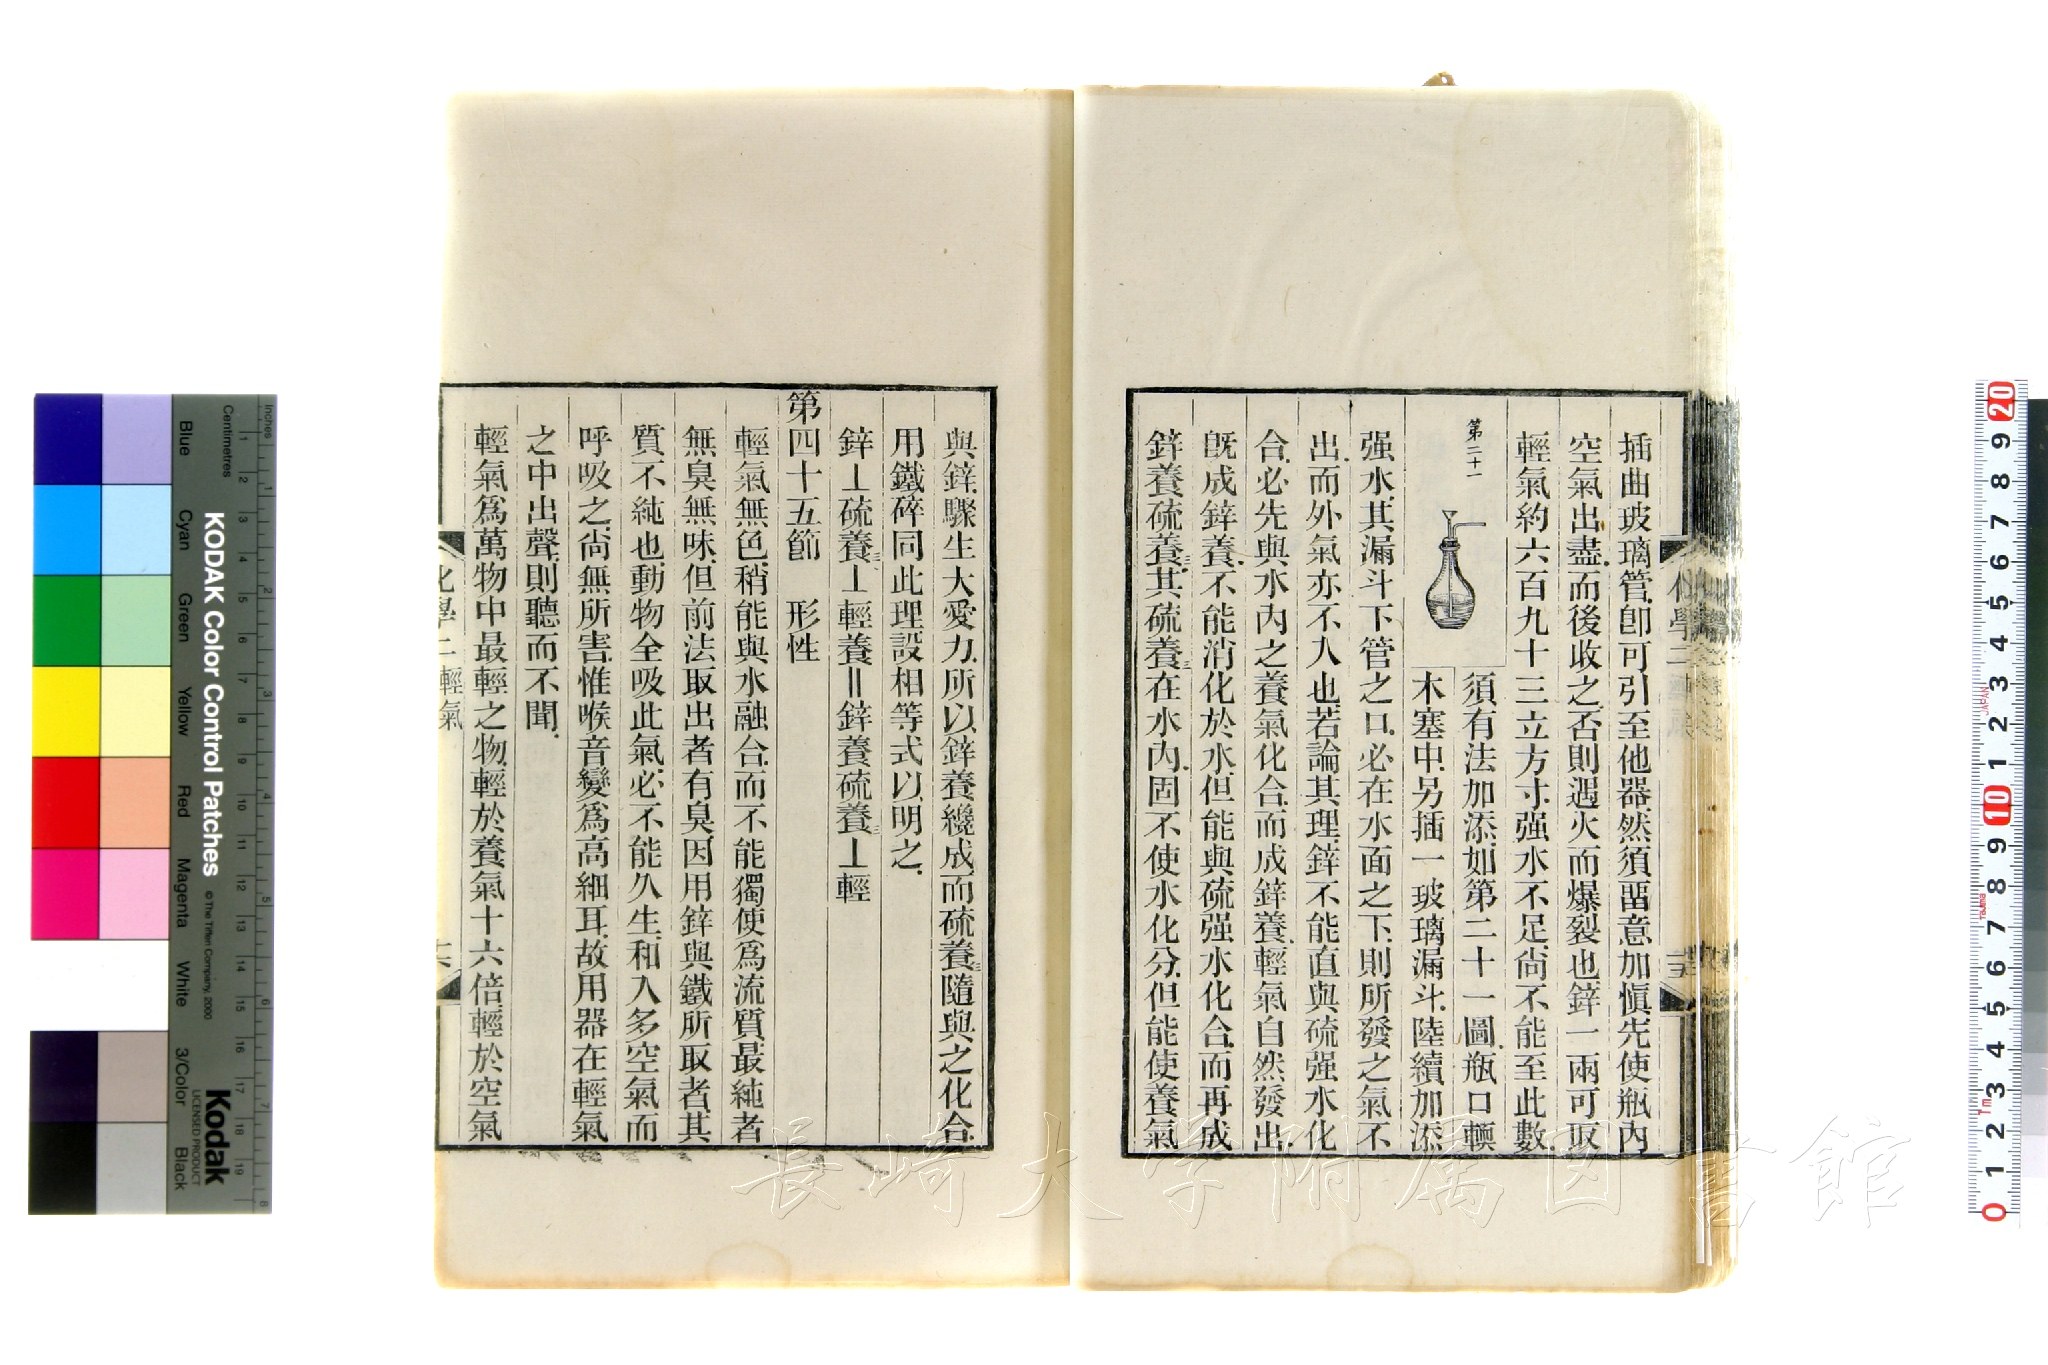 插曲玻璃管卽可引至他器然須畱意加愼先使瓶內
空氣出盡而後收之否則遇火而爆裂也鋅一兩可取
輕氣約六百九十三立方寸强水不足尙不能至此數
第二十一
須有法加添如第二十一圖瓶口輭
木塞中另插一玻璃漏斗陸續加添
强水其漏斗下管之口必在水面之下則所發之氣不
出而外氣亦不入也若論其理鋅不能直與硫强水化
合必先與水內之養氣化合而成鋅養輕氣自然發出
旣成鋅養不能消化於水但能與硫强水化合而再成
鋅養硫養三其硫養三在水內固不使水化分但能使養氣
與鋅驟生大愛力所以鋅養纔成而硫養三隨與之化合
用鐵碎同此理設相等式以明之
鋅⊥硫養三⊥輕養‖鋅養硫養三⊥輕
第四十五節 形性
輕氣無色稍能與水融合而不能獨使爲流質最純者
無臭無味但前法取出者有臭因用鋅與鐵所取者其
質不純也動物全吸此氣必不能久生和入多空氣而
呼吸之尙無所害惟喉音變爲高細耳故用器在輕氣
之中出聲則聽而不聞
輕氣爲萬物中最輕之物輕於養氣十六倍輕於空氣
化學二 輕氣
長崎大学附属図書館
KODAK Color Control Patches
© The Tiffen Company, 2000
Kodak
LICENSED PRODUCT
Inches
Centimetres
Blue
Cyan
Green
Yellow
Red
Magenta
White
3/Color
Black
1 2 3 4 5 6 7 8 9 10 11 12 13 14 15 16 17 18 19
1 2 3 4 5 6 7 8
0 1 2 3 4 5 6 7 8 9 10 1 2 3 4 5 6 7 8 9 20
JAPAN
Tajima